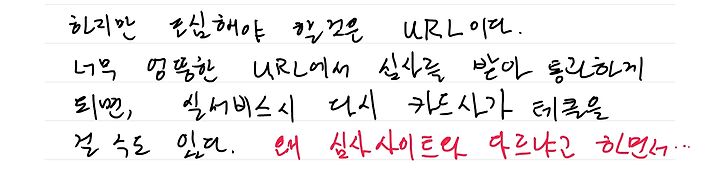 하지만 조심해야 할것은 URL이다.
너무 엉뚱한 URL에서 심사를 받아 통과하게
되면, 실서비스시 다시 카드사가 테클을
걸 수도 있다. 왜 심사사이트와 다르냐고 하면서...